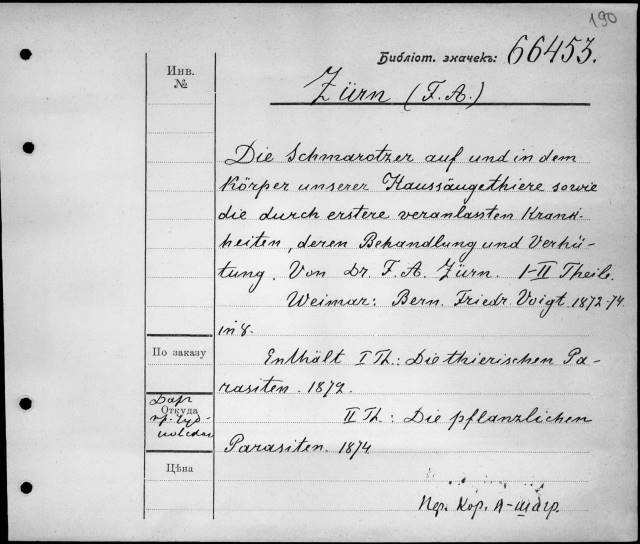 190
Библіот. значекъ: 66453.
Инв.
№
Zürn (F. A.)
Die Schmarotzer auf und in dem
Körper unserer Haussäugethiere sowie
die durch erstere veranlassten Krank-
heiten, deren Behandlung und Verhü-
tung. Von Dr. F. A. Zürn. I-II Theile.
Weimar: Bern. Friedr. Voigt. 1872-74.
in 8.
По заказу
Enthält I Th.: Die thierischen Pa-
rasiten. 1872.
Даръ
Откуда
II Th.: Die pflanzlichen
Parasiten. 1874.
Цѣна
Пер. Кор. А-шагр.